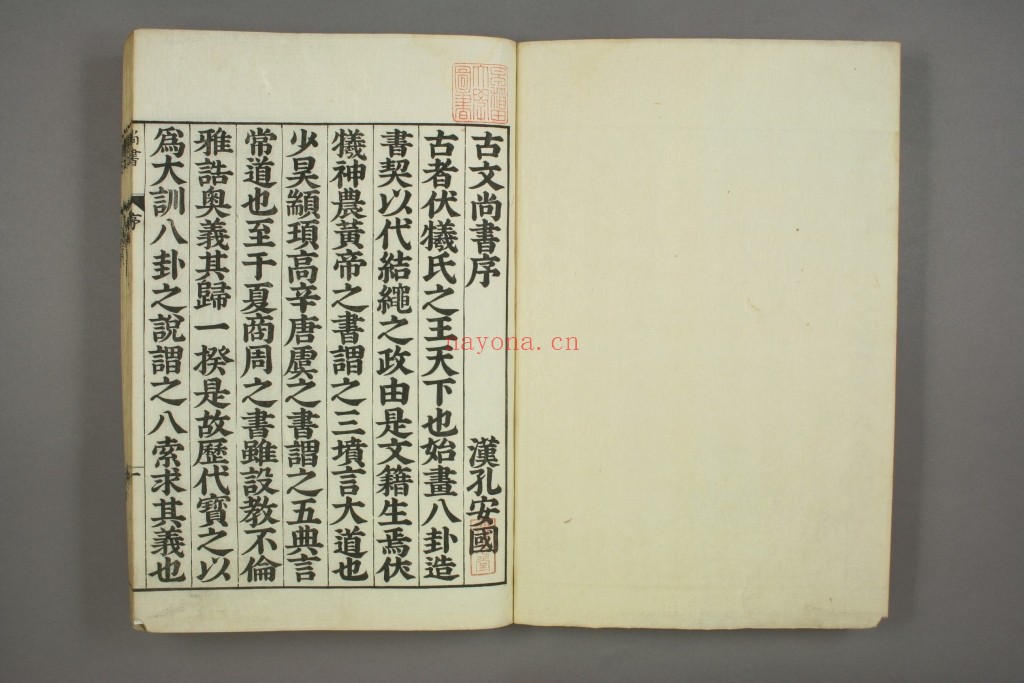 古文尚書序 漢孔安國
古者伏犧氏之王天下也始畫八卦造
書契以代結繩之政由是文籍生焉伏
犧神農黃帝之書謂之三墳言大道也
少昊顓頊高辛唐虞之書謂之五典言
常道也至于夏商周之書雖設教不倫
雅誥奧義其歸一揆是故歷代寶之以
爲大訓八卦之說謂之八索求其義也
尚書 序 一
nayona.cn